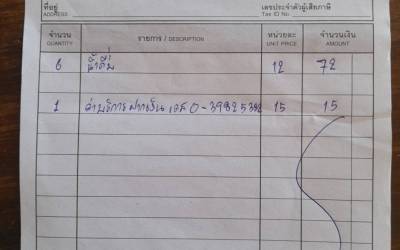 ที่อยู่ ADDRESS เลขประจำตัวผู้เสียภาษี TAX ID No.
จำนวน รายการ / DESCRIPTION หน่วยละ จำนวนเงิน
QUANTITY UNIT PRICE AMOUNT
6 น้ำดื่ม 12 72
1 ค่าบริการฝากเงิน 0-39825382 15 15